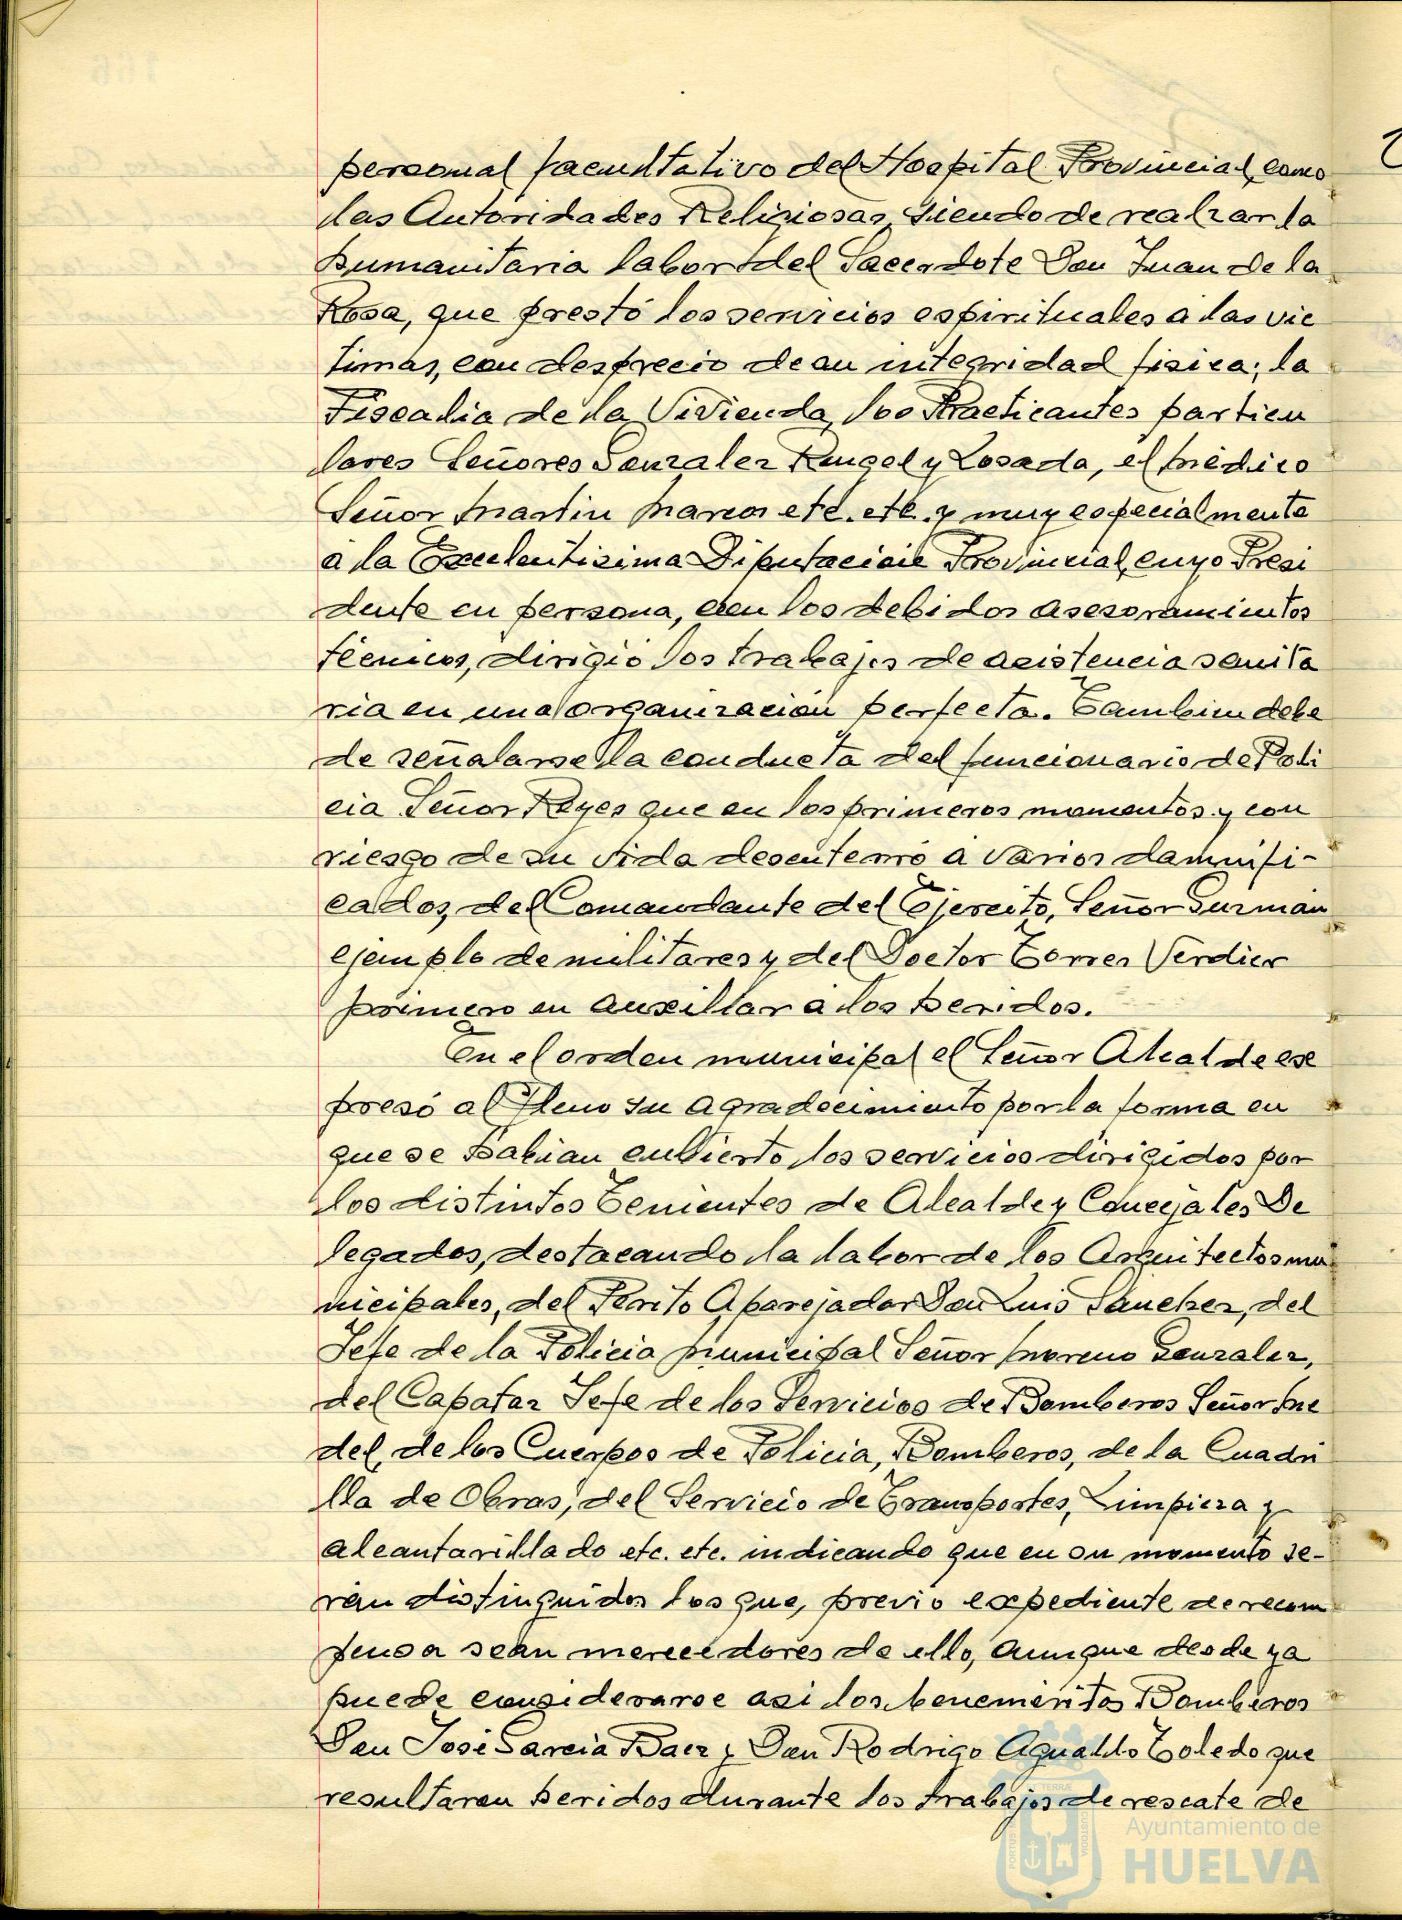 personal facultativo del Hospital Provincial, como
las Autoridades Religiosas, siendo de realzar la
humanitaria labor del Sacerdote Don Juan de la
Rosa, que prestó los servicios espirituales a las vic
timas, con desprecio de su integridad fisica; la
Fiscalia de la Vivienda, los Practicantes particu
lares Señores Gonzalez Rengel y Losada, el médico
Señor Martin Marcos etc. etc. y muy especialmente
a la Excelentisima Diputación Provincial, cuyo Presi
dente en persona, con los debidos asesoramientos
técnicos, dirigió los trabajos de asistencia sanita
ria en una organización perfecta. Tambien debe
de señalarse la conducta del funcionario de Poli
cia Señor Reyes que en los primeros momentos y con
riesgo de su vida desenterró a varios damnifi-
cados, del Comandante del Ejercito, Señor Guzmán
ejemplo de militares y del Doctor Torres Verdier
primero en auxiliar a los heridos.
En el orden municipal el Señor Alcalde ex
presó al Pleno su agradecimiento por la forma en
que se habian cubierto los servicios dirigidos por
los distintos Tenientes de Alcalde y Concejales De
legados, destacando la labor de los Arquitectos mu
nicipales, del Perito Aparejador Don Luis Sánchez, del
Jefe de la Policia Municipal Señor Moreno Gonzalez,
del Capataz Jefe de los Servicios de Bomberos Señor Me
del, de los Cuerpos de Policia, Bomberos, de la Cuadri
lla de Obras, del Servicio de Transportes, Limpieza y
alcantarillado etc. etc. indicando que en su momento se-
rán distinguidos los que, previo expediente de recom
pensa sean merecedores de ello, aunque desde ya
puede considerarse asi los beneméritos Bomberos
Don José Garcia Baez y Don Rodrigo Agualdo Toledo que
resultaron heridos durante los trabajos de rescate de
Ayuntamiento de
HUELVA